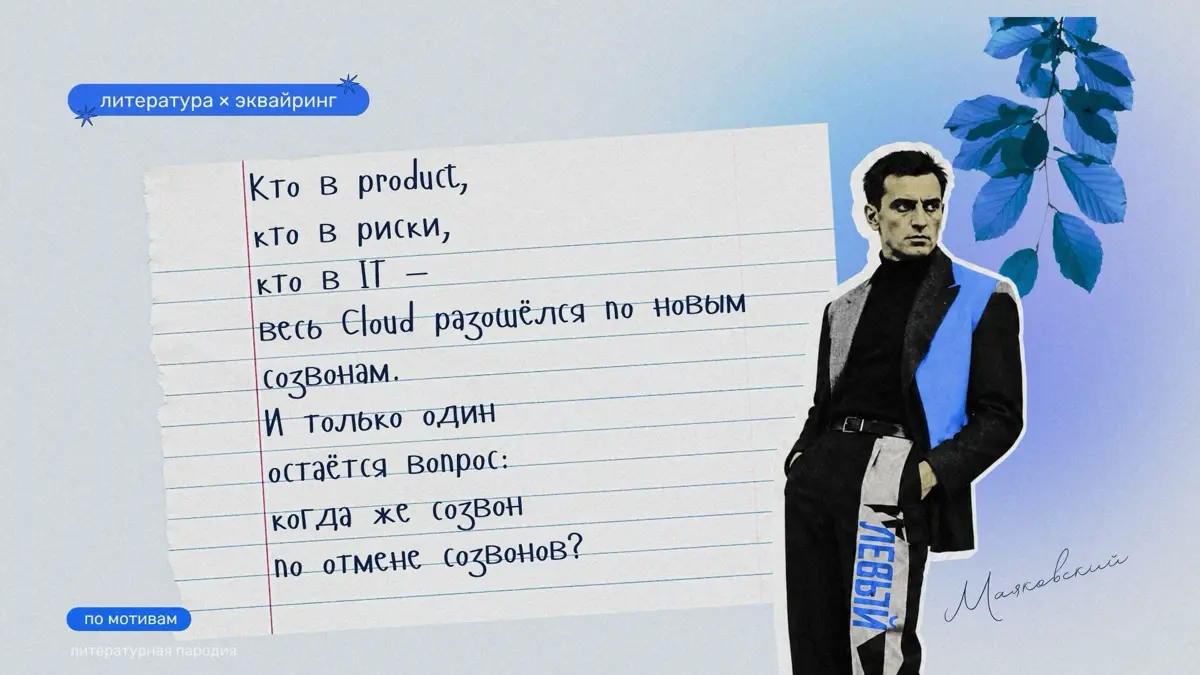 литература × эквайринг
Кто в product,
кто в риски,
кто в IT —
весь Cloud разошёлся по новым
созвонам.
И только один
остаётся вопрос:
когда же созвон
по отмене созвонов?
ЛЕВЫЙ
Маяковский
по мотивам
литературная пародия